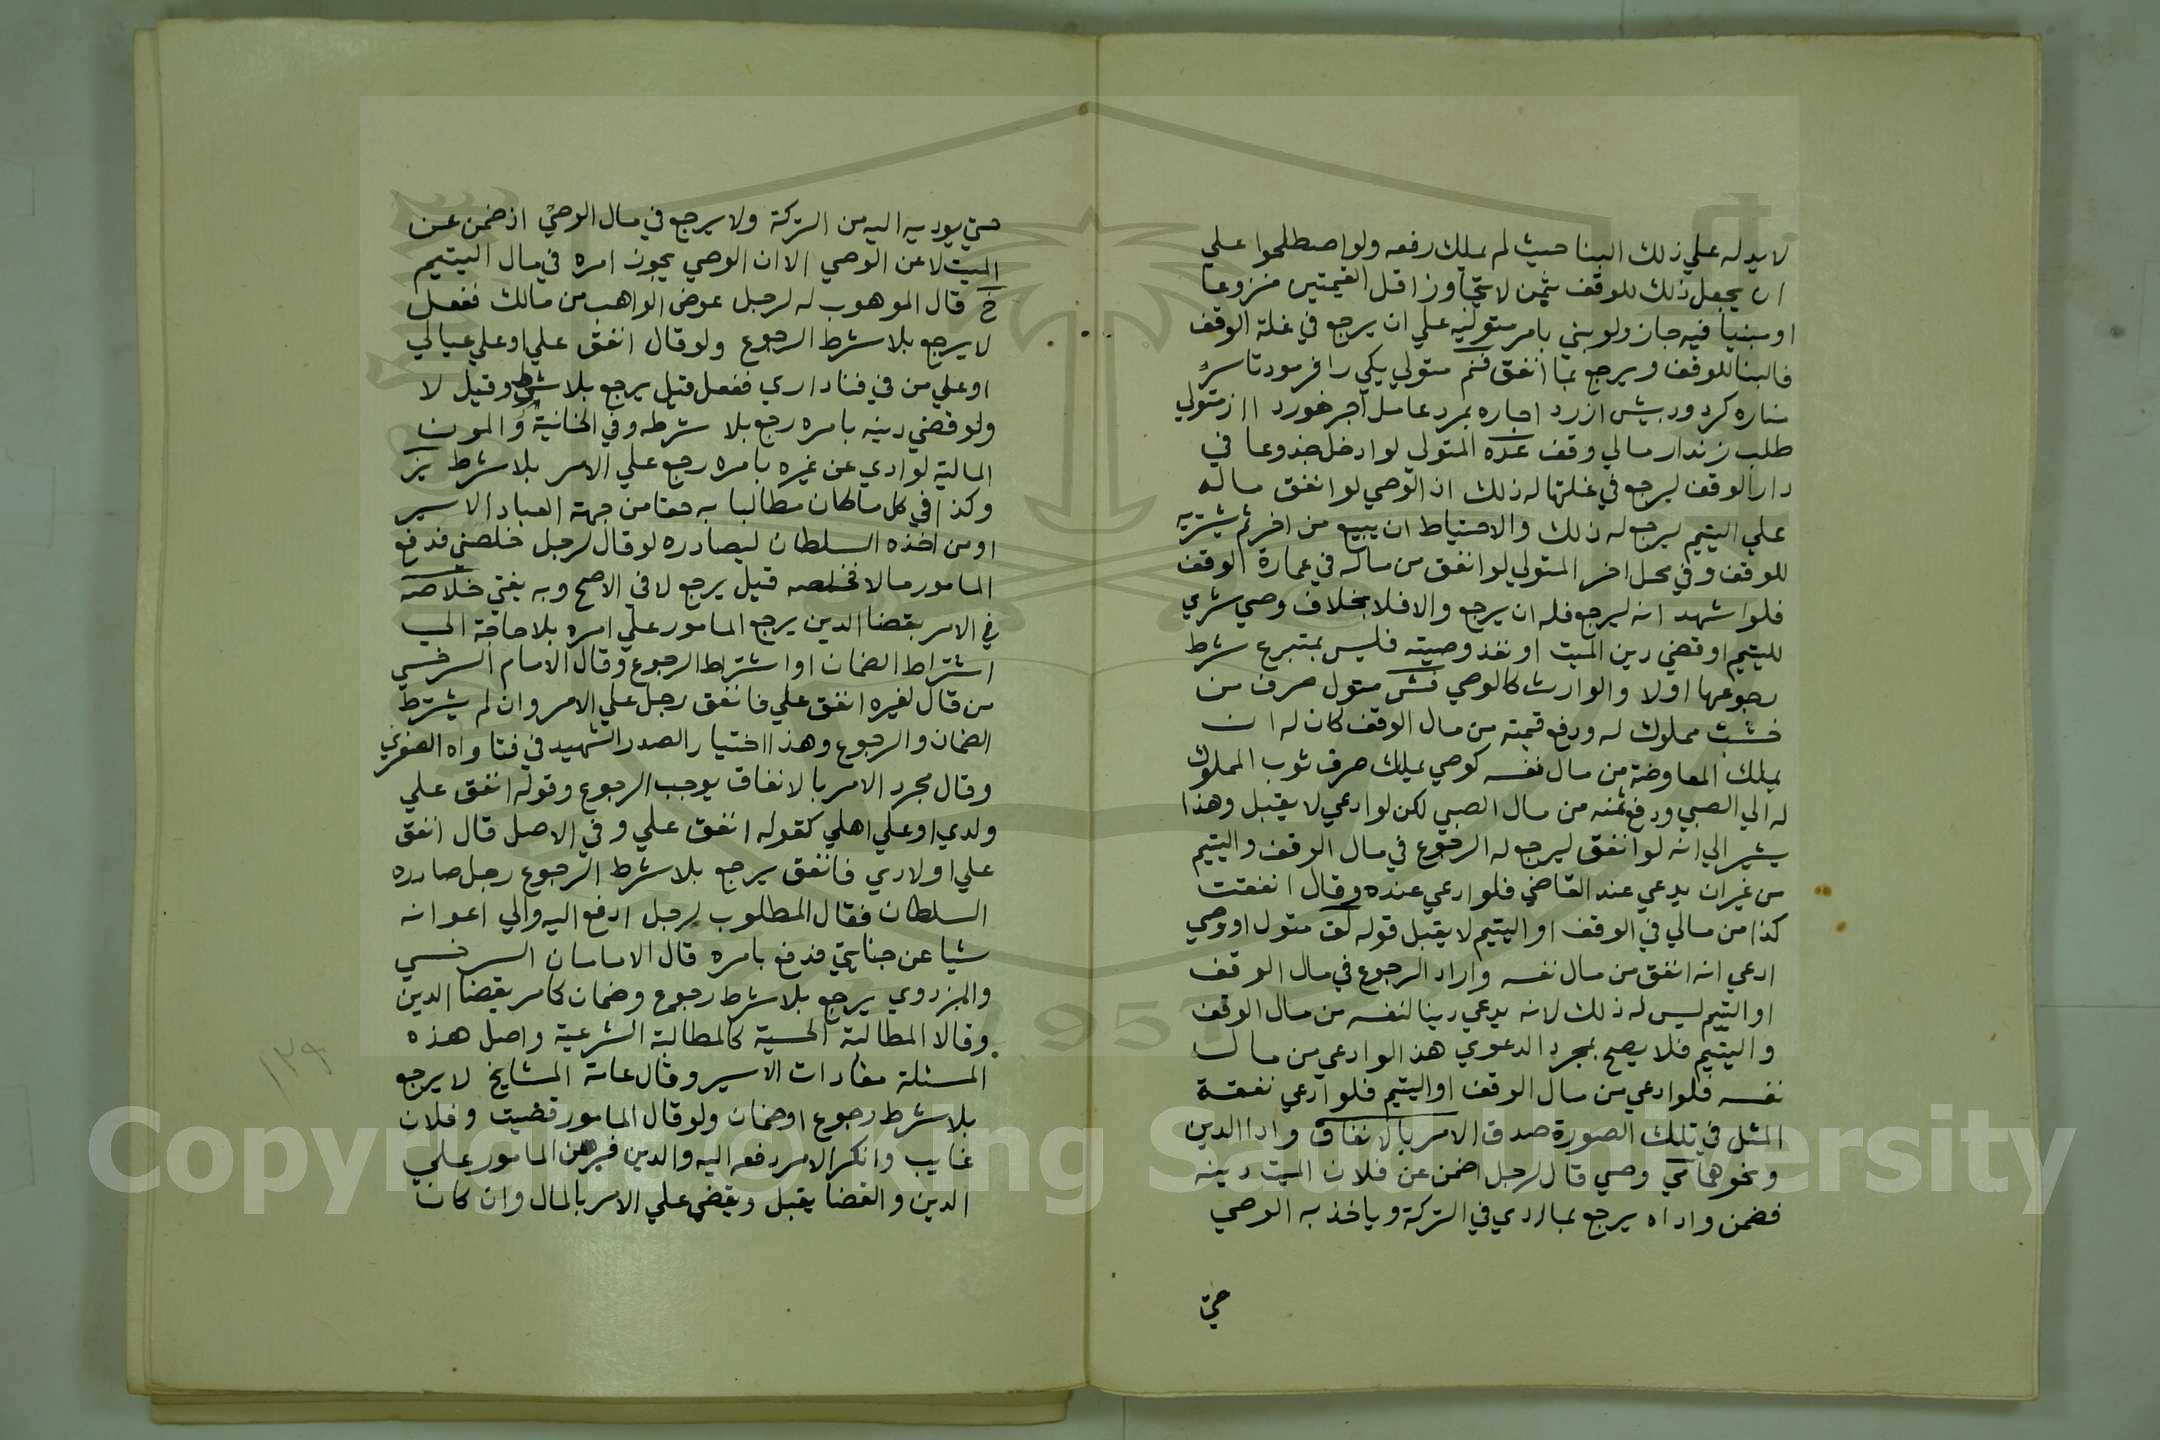 لا يد له علي ذلك البنا حيث لم يملك رفعه ولو اصطلحوا علي
ان يجعل ذلك للوقف بثمن لا يتجاوز اقل القيمتين منزوعا
او مبنيا فيه جاز ولو بني بامر متوليه علي ان يرجع في غلة الوقف
فالبنا للوقف ويرجع بما انفق متولي يكي را فرمود تا
مناره كرد اجاره بمرد عامل آجر خورد از متولي
طلب وقف عده المتولي لو ادخل جذوعا في
دار الوقف ليرجع في غلتها له ذلك اذ الوصي لو انفق ماله
علي اليتيم ليرجع له ذلك والاحتياط ان يبيع من اخر ثم يشتريه
للوقف وفي محل اخر المتولي لو انفق من ماله في عمارة الوقف
فلو اشهد انه ليرجع فله ان يرجع والا فلا بخلاف وصي شري
لليتيم او قضي دين الميت او نفذ وصيته فليس بمتبرع شرط
رجوعها اولا والوارث كالوصي فش متول صرف من
خشب مملوك له ودفع قيمته من مال الوقف كان له ان
يملك المعاوضة من مال نفسه كوصي يملك صرف ثوب المملوك
له الي الصبي ودفع ثمنه من مال الصبي لكن لو ادعي لا يقبل وهذا
يشير الي انه لو انفق ليرجع له الرجوع في مال الوقف واليتيم
من غير ان يدعي عند القاضي فلو ادعي عنده وقال انفقت
كذا من مالي في الوقف او اليتيم لا يقبل قوله متول او وصي
ادعي انه انفق من مال نفسه واراد الرجوع في مال الوقف
او اليتيم ليس له ذلك لانه يدعي دينا لنفسه من مال الوقف
واليتيم فلا يصح بمجرد الدعوي هذا لو ادعي من مال
نفسه فلو ادعي من مال الوقف او اليتيم فلو ادعي نفقة
المثل في تلك الصورة صدق الامر بالانفاق وادا الدين
ونحوهما وصي قال لرجل اضمن عن فلان الميت دينه
فضمن واداه يرجع بما ادي في التركة وياخذ به الوصي
حتي
حتي يوديه اليه من التركة ولا يرجع في مال الوصي اذ ضمن عن
الميت لا عن الوصي الا ان الوصي يجوز امره في مال اليتيم
خ قال الموهوب له لرجل عوض الواهب من مالك ففعل
لا يرجع بلا شرط الرجوع ولو قال انفق علي او علي عيالي
او علي من في فنا داري ففعل قيل يرجع بلا شرط وقيل لا
ولو قضي دينه بامره رجع بلا شرطه وفي الخانية والمون
المالية لو ادي عن غيره بامره رجع علي الامر بلا شرط بز
وكذا في كل ما كان مطالبا به حقا من جهة العباد الاسير
او من اخذه السلطان ليصادره لو قال لرجل خلصني فدفع
المامور مالا فخلصه قيل يرجع لا في الاصح وبه يفتي خلاصه
في الامر بقضا الدين يرجع المامور علي امره بلا حاجة الي
اشتراط الضمان او اشتراط الرجوع وقال الامام السرخسي
من قال لغيره انفق علي فانفق رجل علي الامر وان لم يشترط
الضمان والرجوع وهذا اختيار الصدر الشهيد في فتاواه الصغري
وقال مجرد الامر بالانفاق يوجب الرجوع وقوله انفق علي
ولدي او علي اهلي كقوله انفق علي وفي الاصل قال انفق
علي اولادي فانفق يرجع بلا شرط الرجوع رجل صادره
السلطان فقال المطلوب لرجل ادفع اليه والي اعوانه
شيا عن جنايتي فدفع بامره قال الامامان السرخسي
والبزدوي يرجع بلا شرط رجوع وضمان كامر بقضا الدين
وقالا المطالبة الحسية كالمطالبة الشرعية واصل هذه
المسئلة مفادات الاسير وقال عامة المشايخ لا يرجع
بلا شرط رجوع او ضمان ولو قال المامور قضيت وفلان
غايب وانكر الامر دفعه اليه والدين فبرهن المامور علي
الدين والقضا يقبل ويقضي علي الامر بالمال وان كان
١٣٩
1957
Copyright © King Saud University